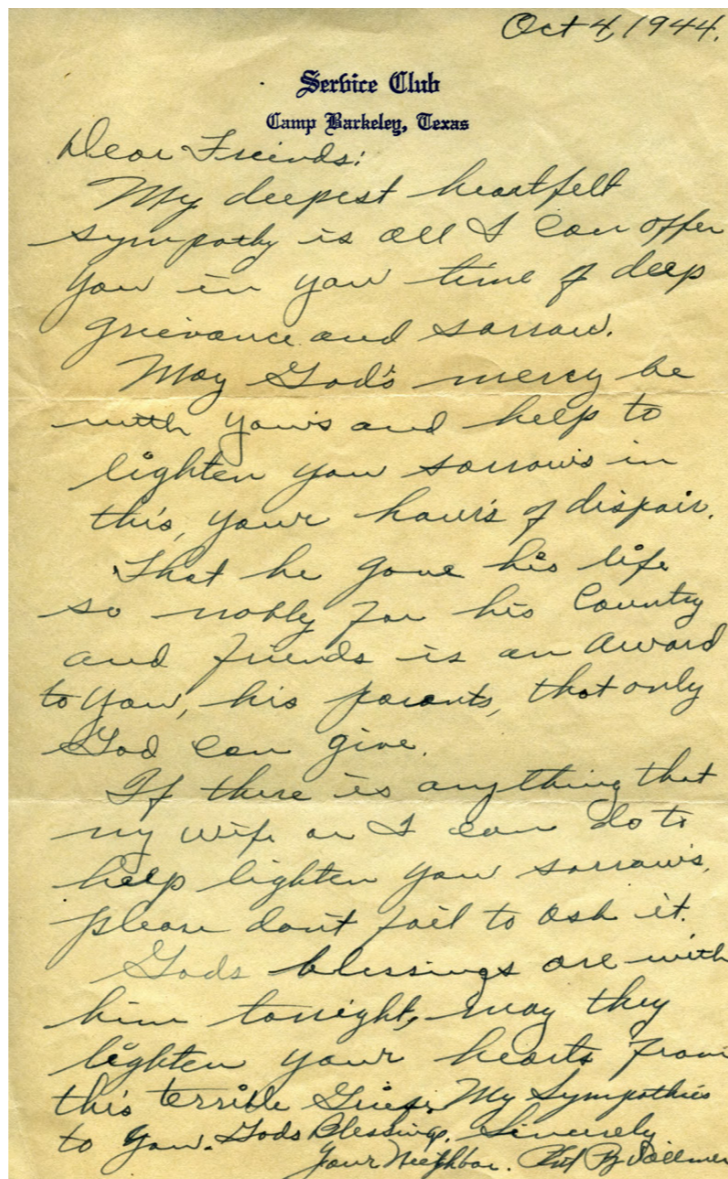 Oct 4, 1944.
Service Club
Camp Barkeley, Texas
Dear Freinds:
My deepest heartfelt
sympathy is all I can offer
you in your time of deep
grievance and sorrow.
May God's mercy be
with yours and help to
lighten your sorrows in
this, your hours of dispair.
That he gave his life
so nobly for his Country
and friends is an Award
to you, his parents, that only
God can give.
If there is anything that
my wife or I can do to
help lighten your sorrows,
please don't fail to ask it.
Gods blessings are with
him tonight, may they
lighten your hearts from
this terrible Grief. My Sympathies
to you. Gods Blessings, Sincerely
Your Neighbor. Pvt